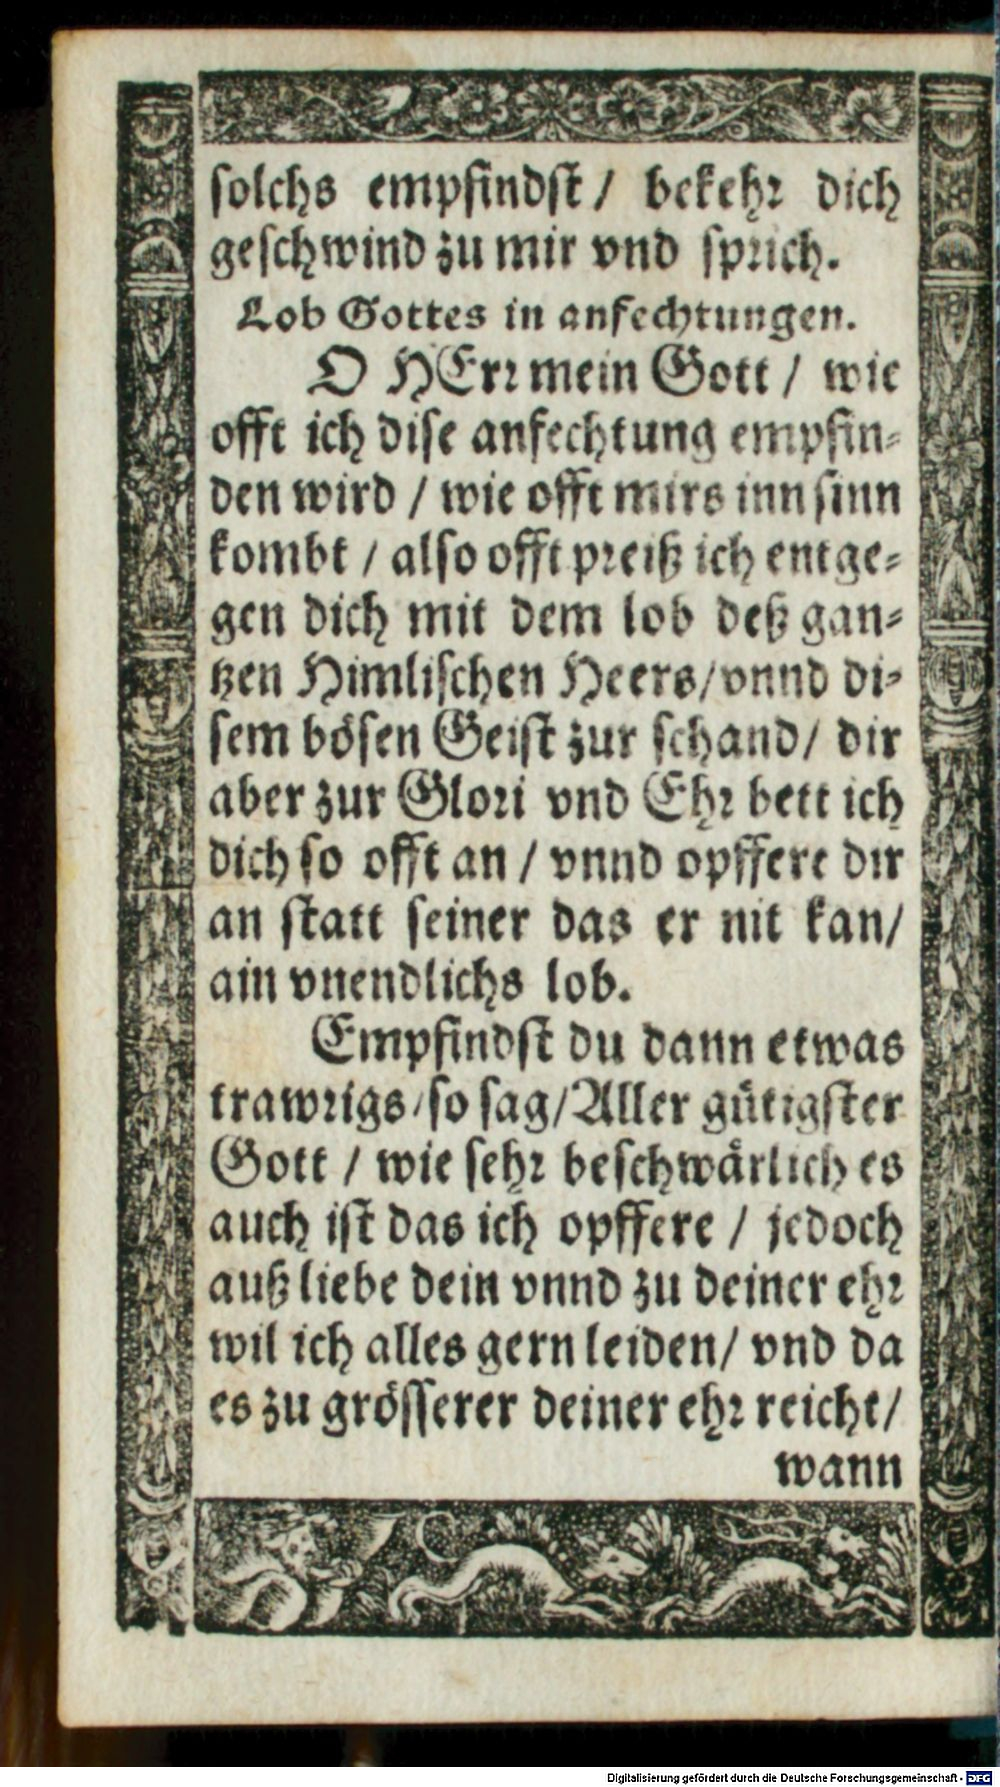 solchs empfindst / bekehr dich
geschwind zu mir vnd sprich.
Lob Gottes in anfechtungen.
O HErr mein Gott / wie
offt ich dise anfechtung empfin-
den wird / wie offt mirs inn sinn
kombt / also offt preiß ich entge-
gen dich mit dem lob deß gan-
tzen Himlischen Heers/vnnd di-
sem bösen Geist zur schand/ dir
aber zur Glori vnd Ehr bett ich
dich so offt an / vnnd opffere dir
an statt seiner das er nit kan/
ain vnendlichs lob.
Empfindst du dann etwas
trawrigs/so sag/Aller gütigster
Gott / wie sehr beschwärlich es
auch ist das ich opffere / jedoch
auß liebe dein vnnd zu deiner ehr
wil ich alles gern leiden/ vnd da
es zu grösserer deiner ehr reicht/
wann
Digitalisierung gefördert durch die Deutsche Forschungsgemeinschaft - DFG